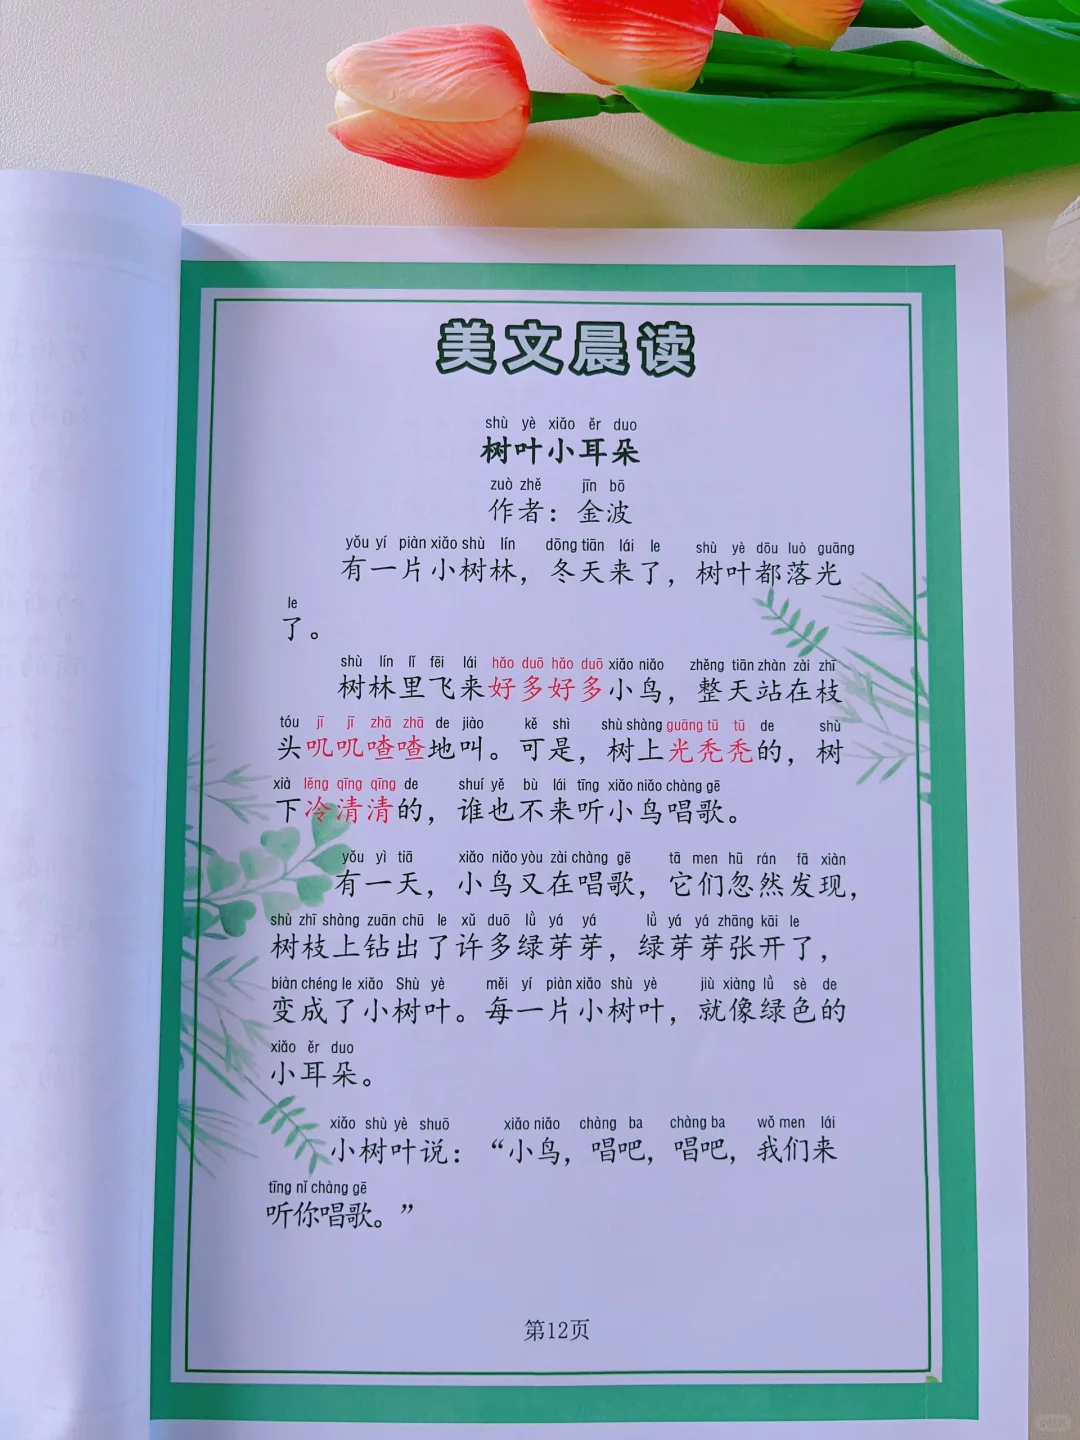 美文晨读
shù yè xiǎo ěr duo
树叶小耳朵
zuò zhě jīn bō
作者：金波
yǒu yí piàn xiǎo shù lín dōng tiān lái le shù yè dōu luò guāng
有一片小树林，冬天来了，树叶都落光
le
了。
shù lín lǐ fēi lái hǎo duō hǎo duō xiǎo niǎo zhěng tiān zhàn zài zhī
树林里飞来好多好多小鸟，整天站在枝
tóu jī jī zhā zhā de jiào kě shì shù shàng guāng tū tū de shù
头叽叽喳喳地叫。可是，树上光秃秃的，树
xià lěng qīng qīng de shuí yě bù lái tīng xiǎo niǎo chàng gē
下冷清清的，谁也不来听小鸟唱歌。
yǒu yì tiā xiǎo niǎo yòu zài chàng gē tā men hū rán fā xiàn
有一天，小鸟又在唱歌，它们忽然发现，
shù zhī shàng zuān chū le xǔ duō lǜ yá yá lǜ yá yá zhāng kāi le
树枝上钻出了许多绿芽芽，绿芽芽张开了，
biàn chéng le xiǎo Shù yè měi yí piàn xiǎo shù yè jiù xiàng lǜ sè de
变成了小树叶。每一片小树叶，就像绿色的
xiǎo ěr duo
小耳朵。
xiǎo shù yè shuō xiǎo niǎo chàng ba chàng ba wǒ men lái
小树叶说：“小鸟，唱吧，唱吧，我们来
tīng nǐ chàng gē
听你唱歌。”
第12页